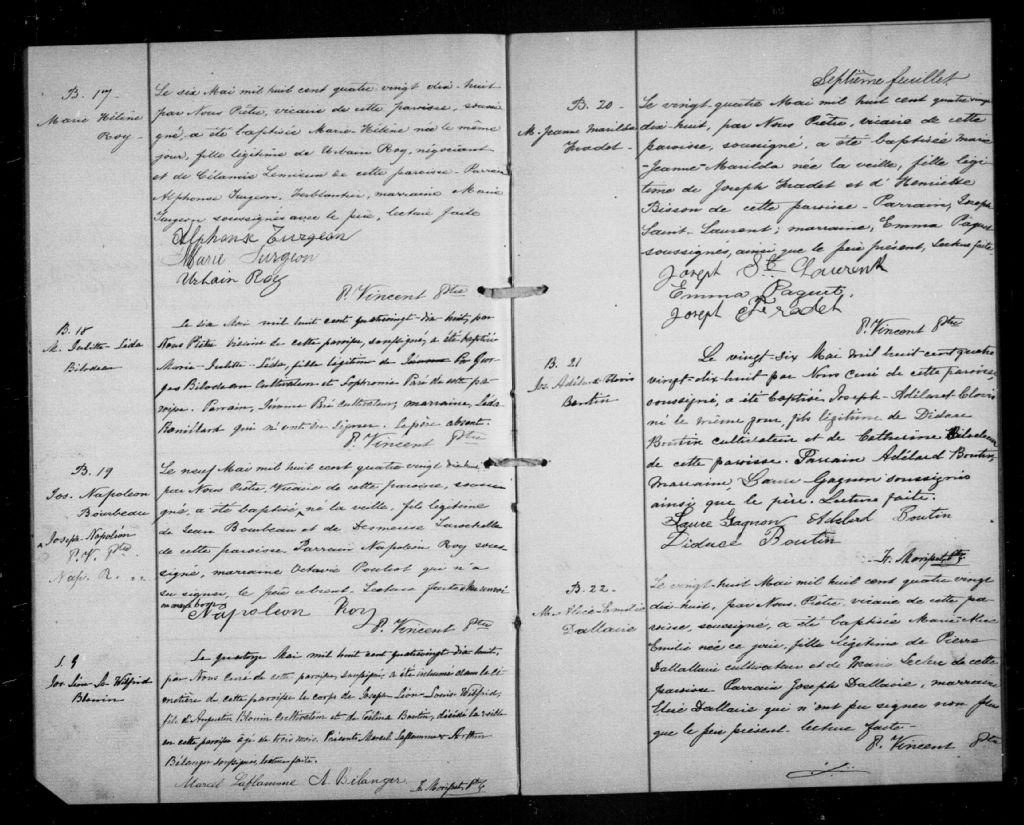 B. 17-
Marie Hélène
Roy-
Le six Mai mil huit cent quatre vingt dix-huit
par Nous Prêtre, vicaire de cette paroisse, soussi
gné, a été baptisée Marie-Hélène née le même
jour, fille légitime de Urbain Roy, négociant
et de Célanire Lemieux de cette paroisse- Parrain
Alphonse Turgeon, ferblantier, marraine Marie
Turgeon soussignés avec le père, lecture faite
Alphonse Turgeon
Marie Turgeon
Urbain Roy
P. Vincent Ptre
B. 18
M. Juliette-Léda
Bilodeau
Le six Mai mil huit cent quatrevingt-dix huit, par
Nous Prêtre Vicaire de cette paroisse, soussigné, a été baptisée
Marie-Juliette-Léda, fille légitime de Geor
ges Bilodeau Cultivateur et Sophronie Paré de cette pa
roisse. Parrain, Paré Cultivateur, marraine, Léda
Robillard qui n'ont su signer. Le père absent.
P. Vincent Ptre
B. 19
Jos. Napoléon
Bourbeau
Joseph-Napoléon
P. V. Ptre
Nap. R.
Le neuf Mai mil huit cent quatre vingt dix huit
par Nous Prêtre, Vicaire de cette paroisse, soussi
gné, a été baptisé, né la veille, fils légitime
de Jean Bourbeau et de Larochelle
de cette paroisse Parrain Napoléon Roy sous-
signé, marraine Octavie Pouliot qui n'a
su signer, le père absent- Lecture faite
Napoléon Roy
P. Vincent Ptre
S. 9
Jos Léon-Ls Wilfrid
Blouin
Le quatorze Mai mil huit cent quatrevingt-dix huit,
par Nous Curé de cette paroisse, soussigné, a été inhumé dans le ci
metière de cette paroisse le corps de Joseph-Léon-Louis-Wilfrid,
fils d'Augustin Blouin Cultivateur et de Boutin, décédé la veille
en cette paroisse âgé de trois mois. Présents Marcel Laflamme et Arthur
Bélanger soussignés, lecture faite.
Marcel Laflamme A. Bélanger
Septième feuillet
B. 20-
M. Jeanne Marilda
Fradet-
Le vingt quatre Mai mil huit cent quatre vingt
dix-huit, par Nous Prêtre, vicaire de cette
paroisse, soussigné, a été baptisée Marie
-Jeanne-Marilda née la veille, fille légi
time de Joseph Fradet et d'Henriette
Bisson de cette paroisse- Parrain, Joseph
Saint-Laurent; marraine, Emma Paquet
soussignés, ainsi que le père présent, Lecture faite
Joseph St. Laurent
Emma Paquet.
Joseph Fradet
P. Vincent Ptre
B. 21
Jos. Adélard Clovis
Boutin
Le vingt-six Mai mil huit cent quatre
vingt-dix huit par Nous Curé de cette paroisse,
soussigné, a été baptisé Joseph-Adélard-Clovis
né le même jour, fils légitime de Didace
Boutin cultivateur et de Catherine Bilodeau
de cette paroisse. Parrain Adélard Boutin,
Marraine Laure Gagnon soussignés
ainsi que le père. Lecture faite.
Laure Gagnon Adelard Boutin
Didace Boutin
B. 22-
M. Alice-Emilie
Dallaire
Le vingt-huit Mai mil huit cent quatre vingt
dix-huit, par Nous Prêtre, vicaire de cette pa
roisse, soussigné, a été baptisée Marie-Alice
Emilie née ce jour, fille légitime de Pierre
Dallaire cultivateur et de Marie Leclerc de cette
paroisse- Parrain Joseph Dallaire, marraine
Dallaire qui n'ont pu signer non plus
que le père présent- lecture faite-
P. Vincent Ptre